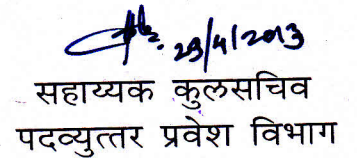 23/4/2013
सहाय्यक कुलसचिव
पदव्युत्तर प्रवेश विभाग